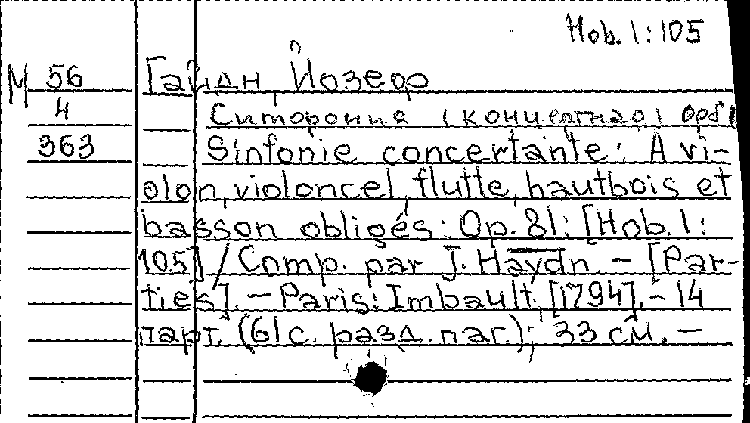 Hob. I:105
М 56
4
363
Гайдн, Йозеф
Sinfonie concertante: A vi-
olon, violoncel, flutte, hautbois et
basson obligés: Op. 81: [Hob. I:
105] / Comp. par J. Haydn. – [Par-
ties]. – Paris: Imbault, [1794]. – 14
парт. (61 с. разд. паг.); 33 см. –